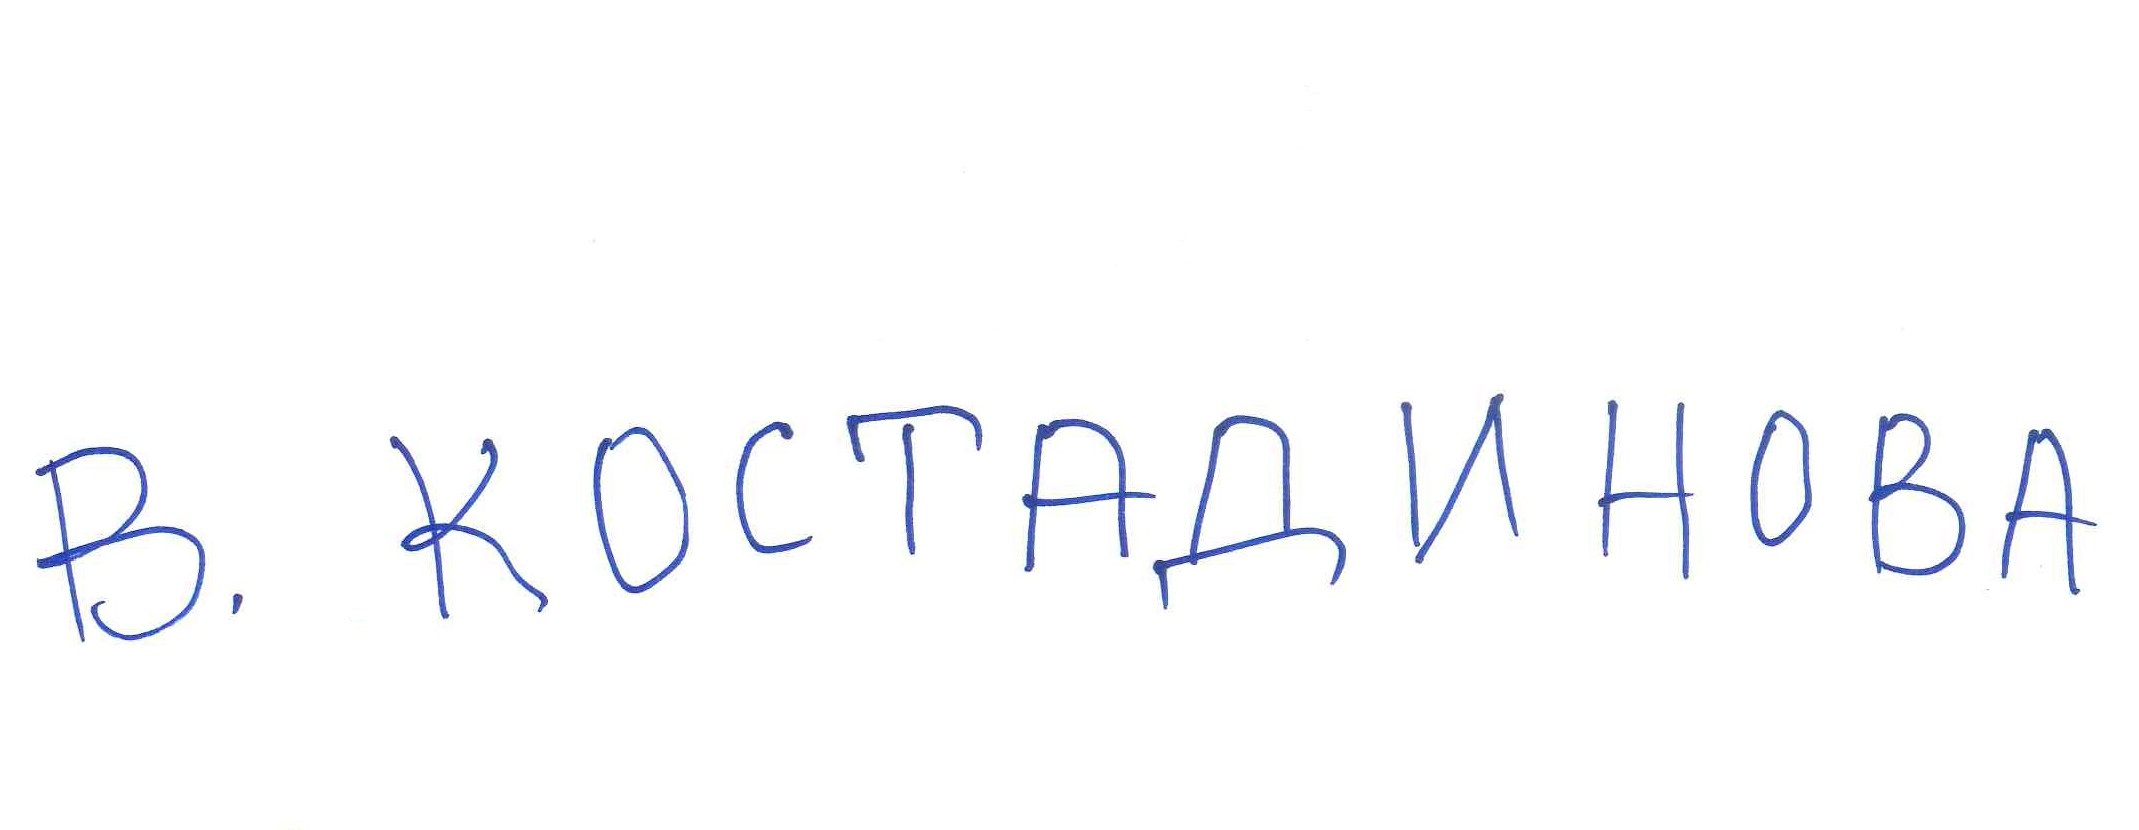 В. КОСТАДИНОВА